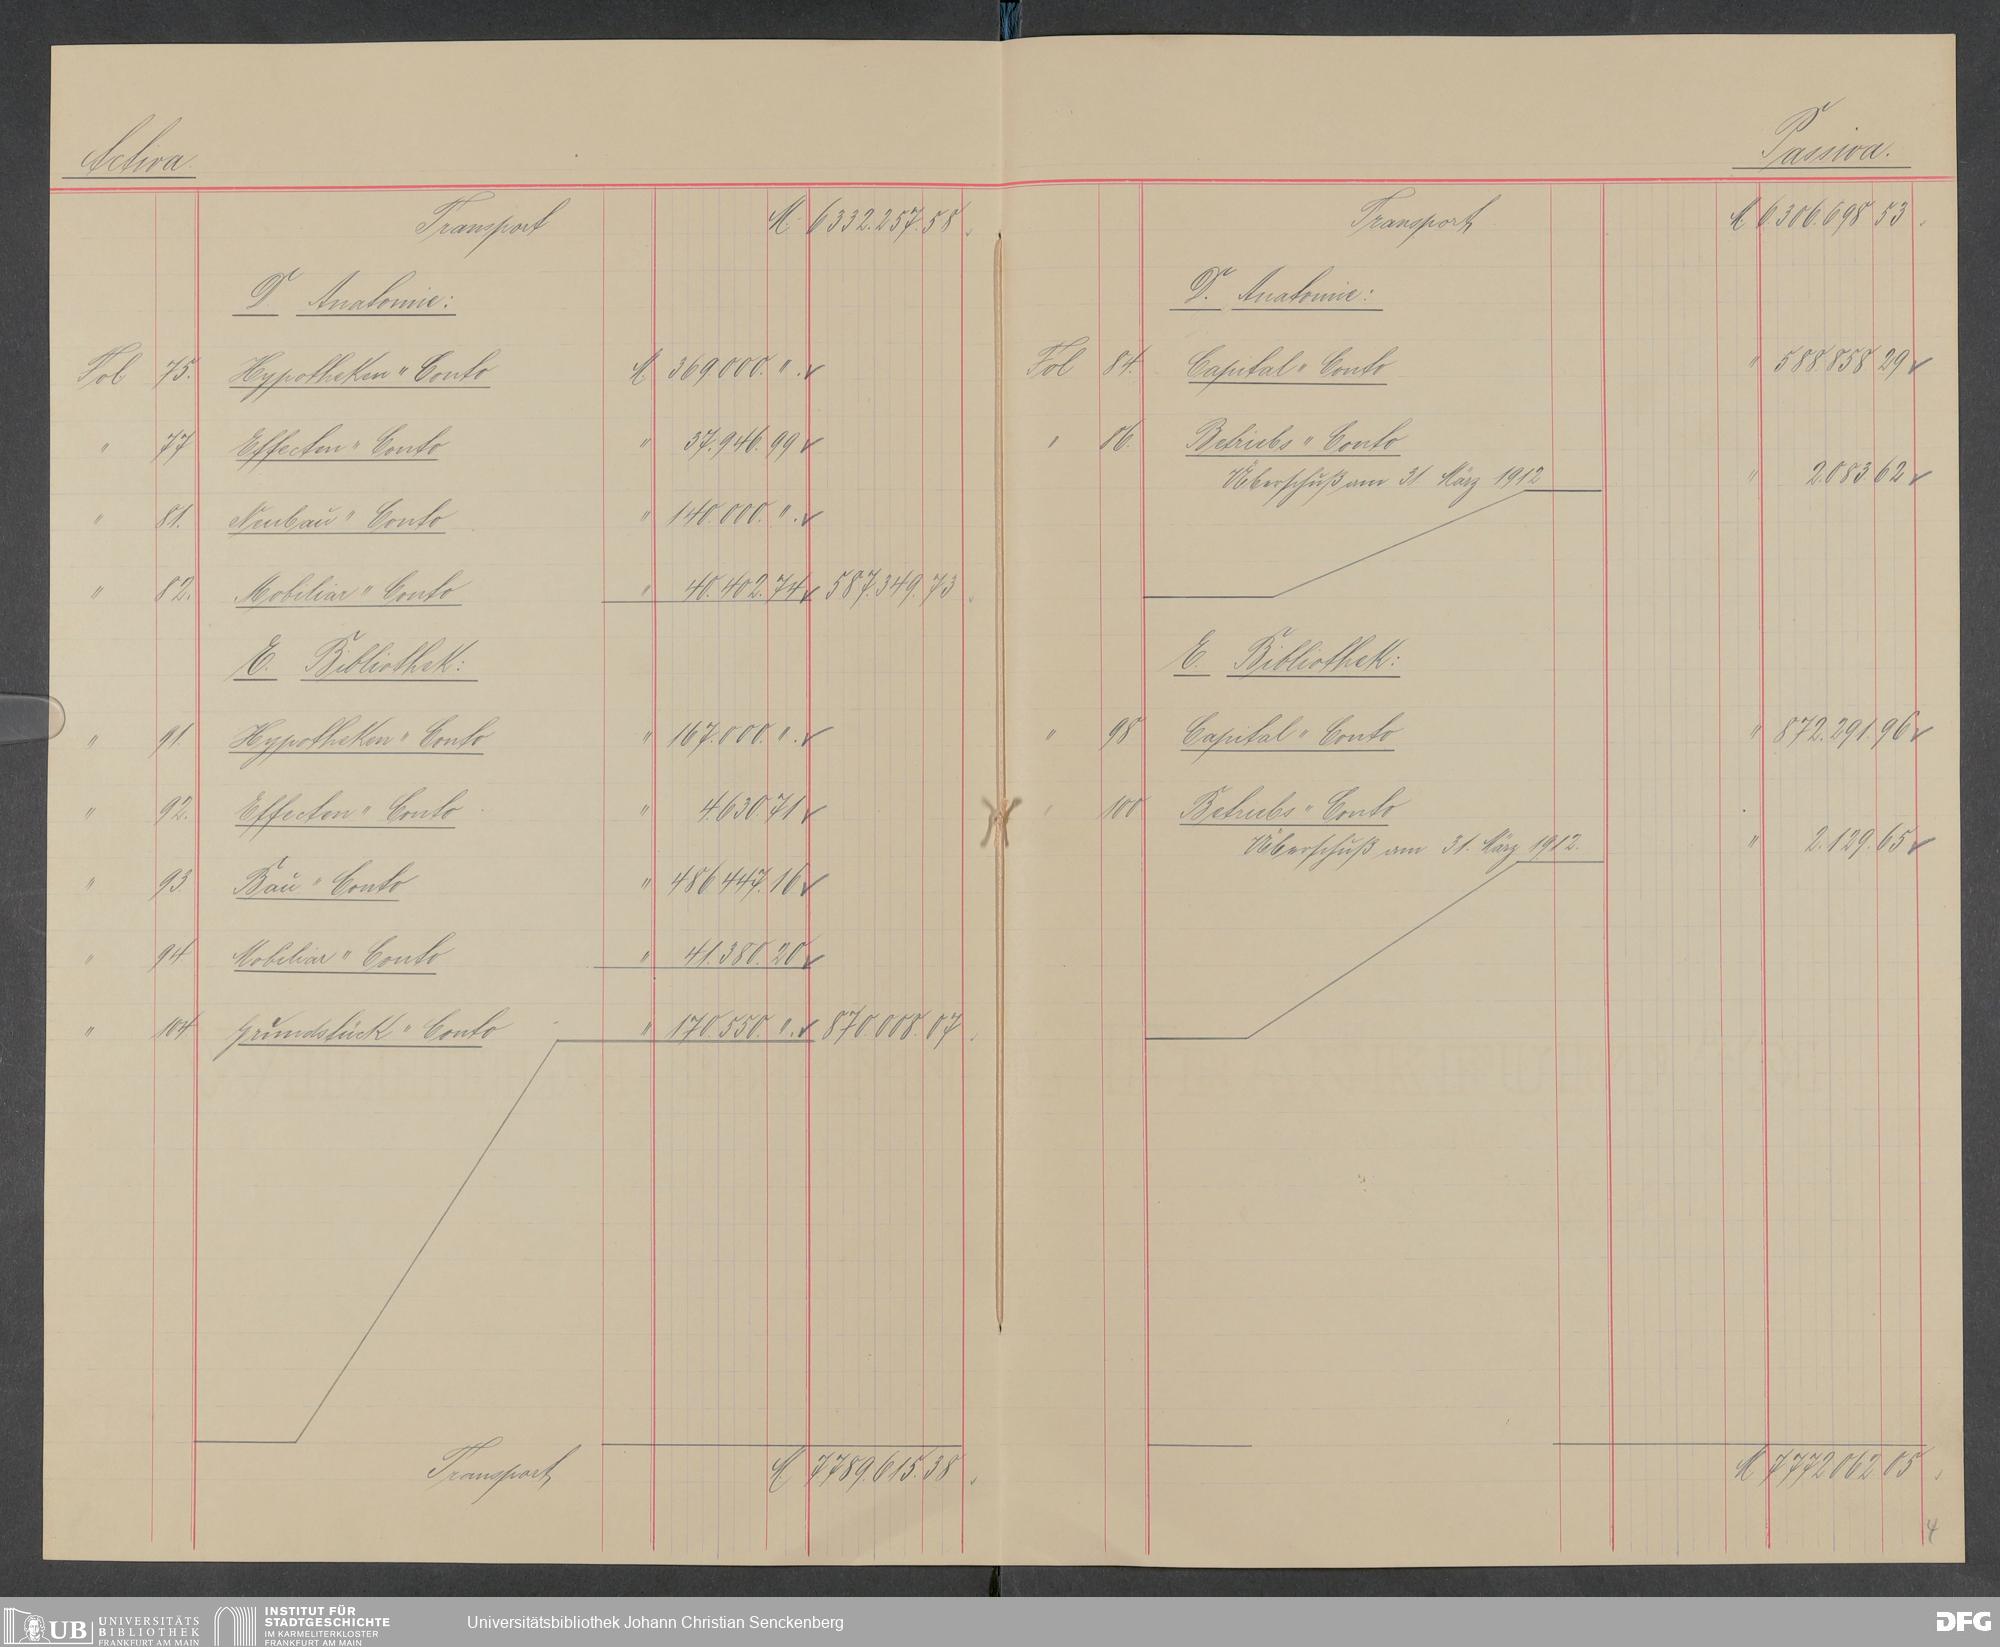 Activa.
Transport M. 6332.257.58.
D. Anatomie:
Fol 75. Hypotheken " Conto M 369.000. ".
" 77 Effecten " Conto " 37.946.99
" 81. Neubau " Conto " 140.000. ".
" 82. Mobiliar " Conto " 40.402.74 587.349.73.
E. Bibliothek:
" 91. Hypotheken " Conto " 167.000. ".
" 92. Effecten " Conto " 4.630.71
" 93 Bau " Conto " 486 447.16
" 94 Mobiliar " Conto " 41.380.20
" 104 Grundstück " Conto " 170.550. ". 870.008.07.
Transport M. 7789.615.38.
Passiva.
Transport M. 6.306.698 53.
D. Anatomie:
Fol 84. Capital " Conto " 588.858 29
" 86. Betriebs " Conto
Überschuß am 31. März 1912 " 2.083 62
E. Bibliothek:
" 98 Capital " Conto " 872.291.96
" 100 Betriebs " Conto
Überschuß am 31. März 1912. " 2.129.65
M 7772 062 05.
4
UB UNIVERSITÄTS
BIBLIOTHEK
FRANKFURT AM MAIN
INSTITUT FÜR
STADTGESCHICHTE
IM KARMELITERKLOSTER
FRANKFURT AM MAIN
Universitätsbibliothek Johann Christian Senckenberg
DFG